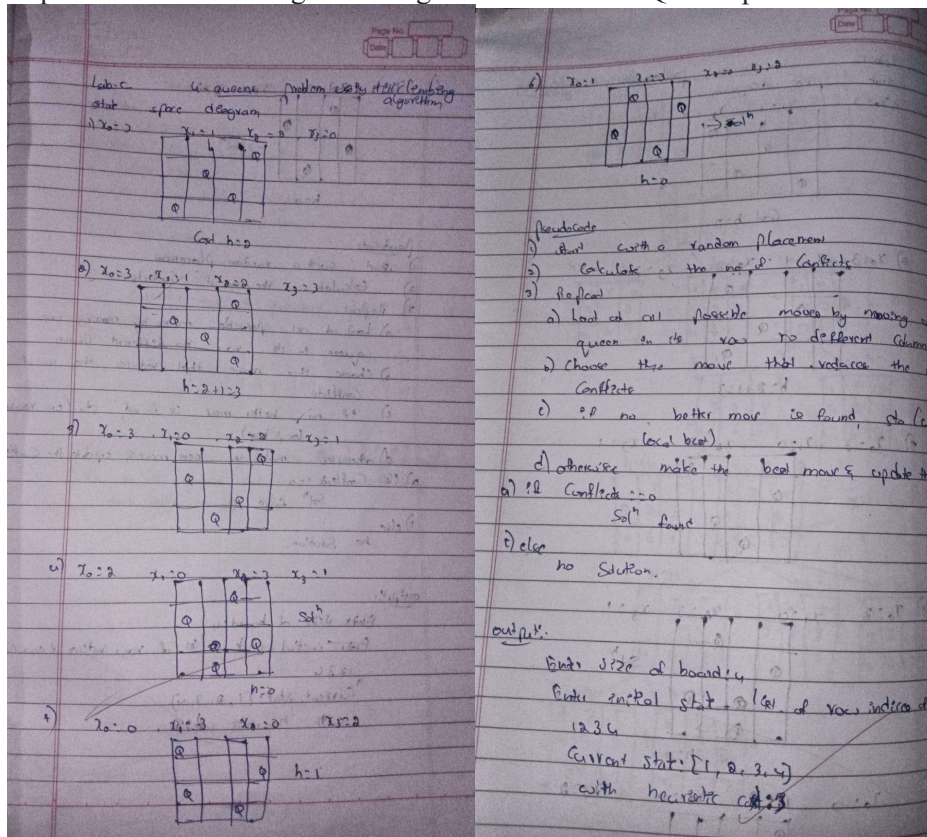 Page No
Date
Lab-5 4-queens problem using Hill climbing
algorithm
stat space deagram
1) x₀=3 x₁=1 x₂=2 x₃=0
Q
Q
Q
Q
Cost h=2
2) x₀=3 x₁=1 x₂=2 x₃=3
Q
Q
Q
Q
h=2+1=3
3) x₀=3 x₁=0 x₂=2 x₃=1
Q
Q
Q
Q
4) x₀=2 x₁=0 x₂=3 x₃=1
Q
Q Solⁿ
Q Q
Q
h=0
x₀=0 x₁=3 x₂=0 x₃=2
Q
Q h=1
Q
Q
Date
6) x₀=1 x₁=3 x₂=0 x₃=2
Q
Q
Q → solⁿ.
Q
h=0
Pseudocode
1) start with a random placement
2) Calculate the no of Conflicts
3) Repeat
a) Look at all Possible moves by moving
queen in its row to defferent Column
b) Choose the move that reduces the
Conflicts
c) if no better move is found,
local best)
d) otherwise make the best move & update
if Conflicts ==0
Solⁿ found
else
no Solution.
output:
Enter size of board: 4
Enter initial stat of row indices
1 2 3 4
Current stat: [1, 2, 3, 4]
with heuristic cost: